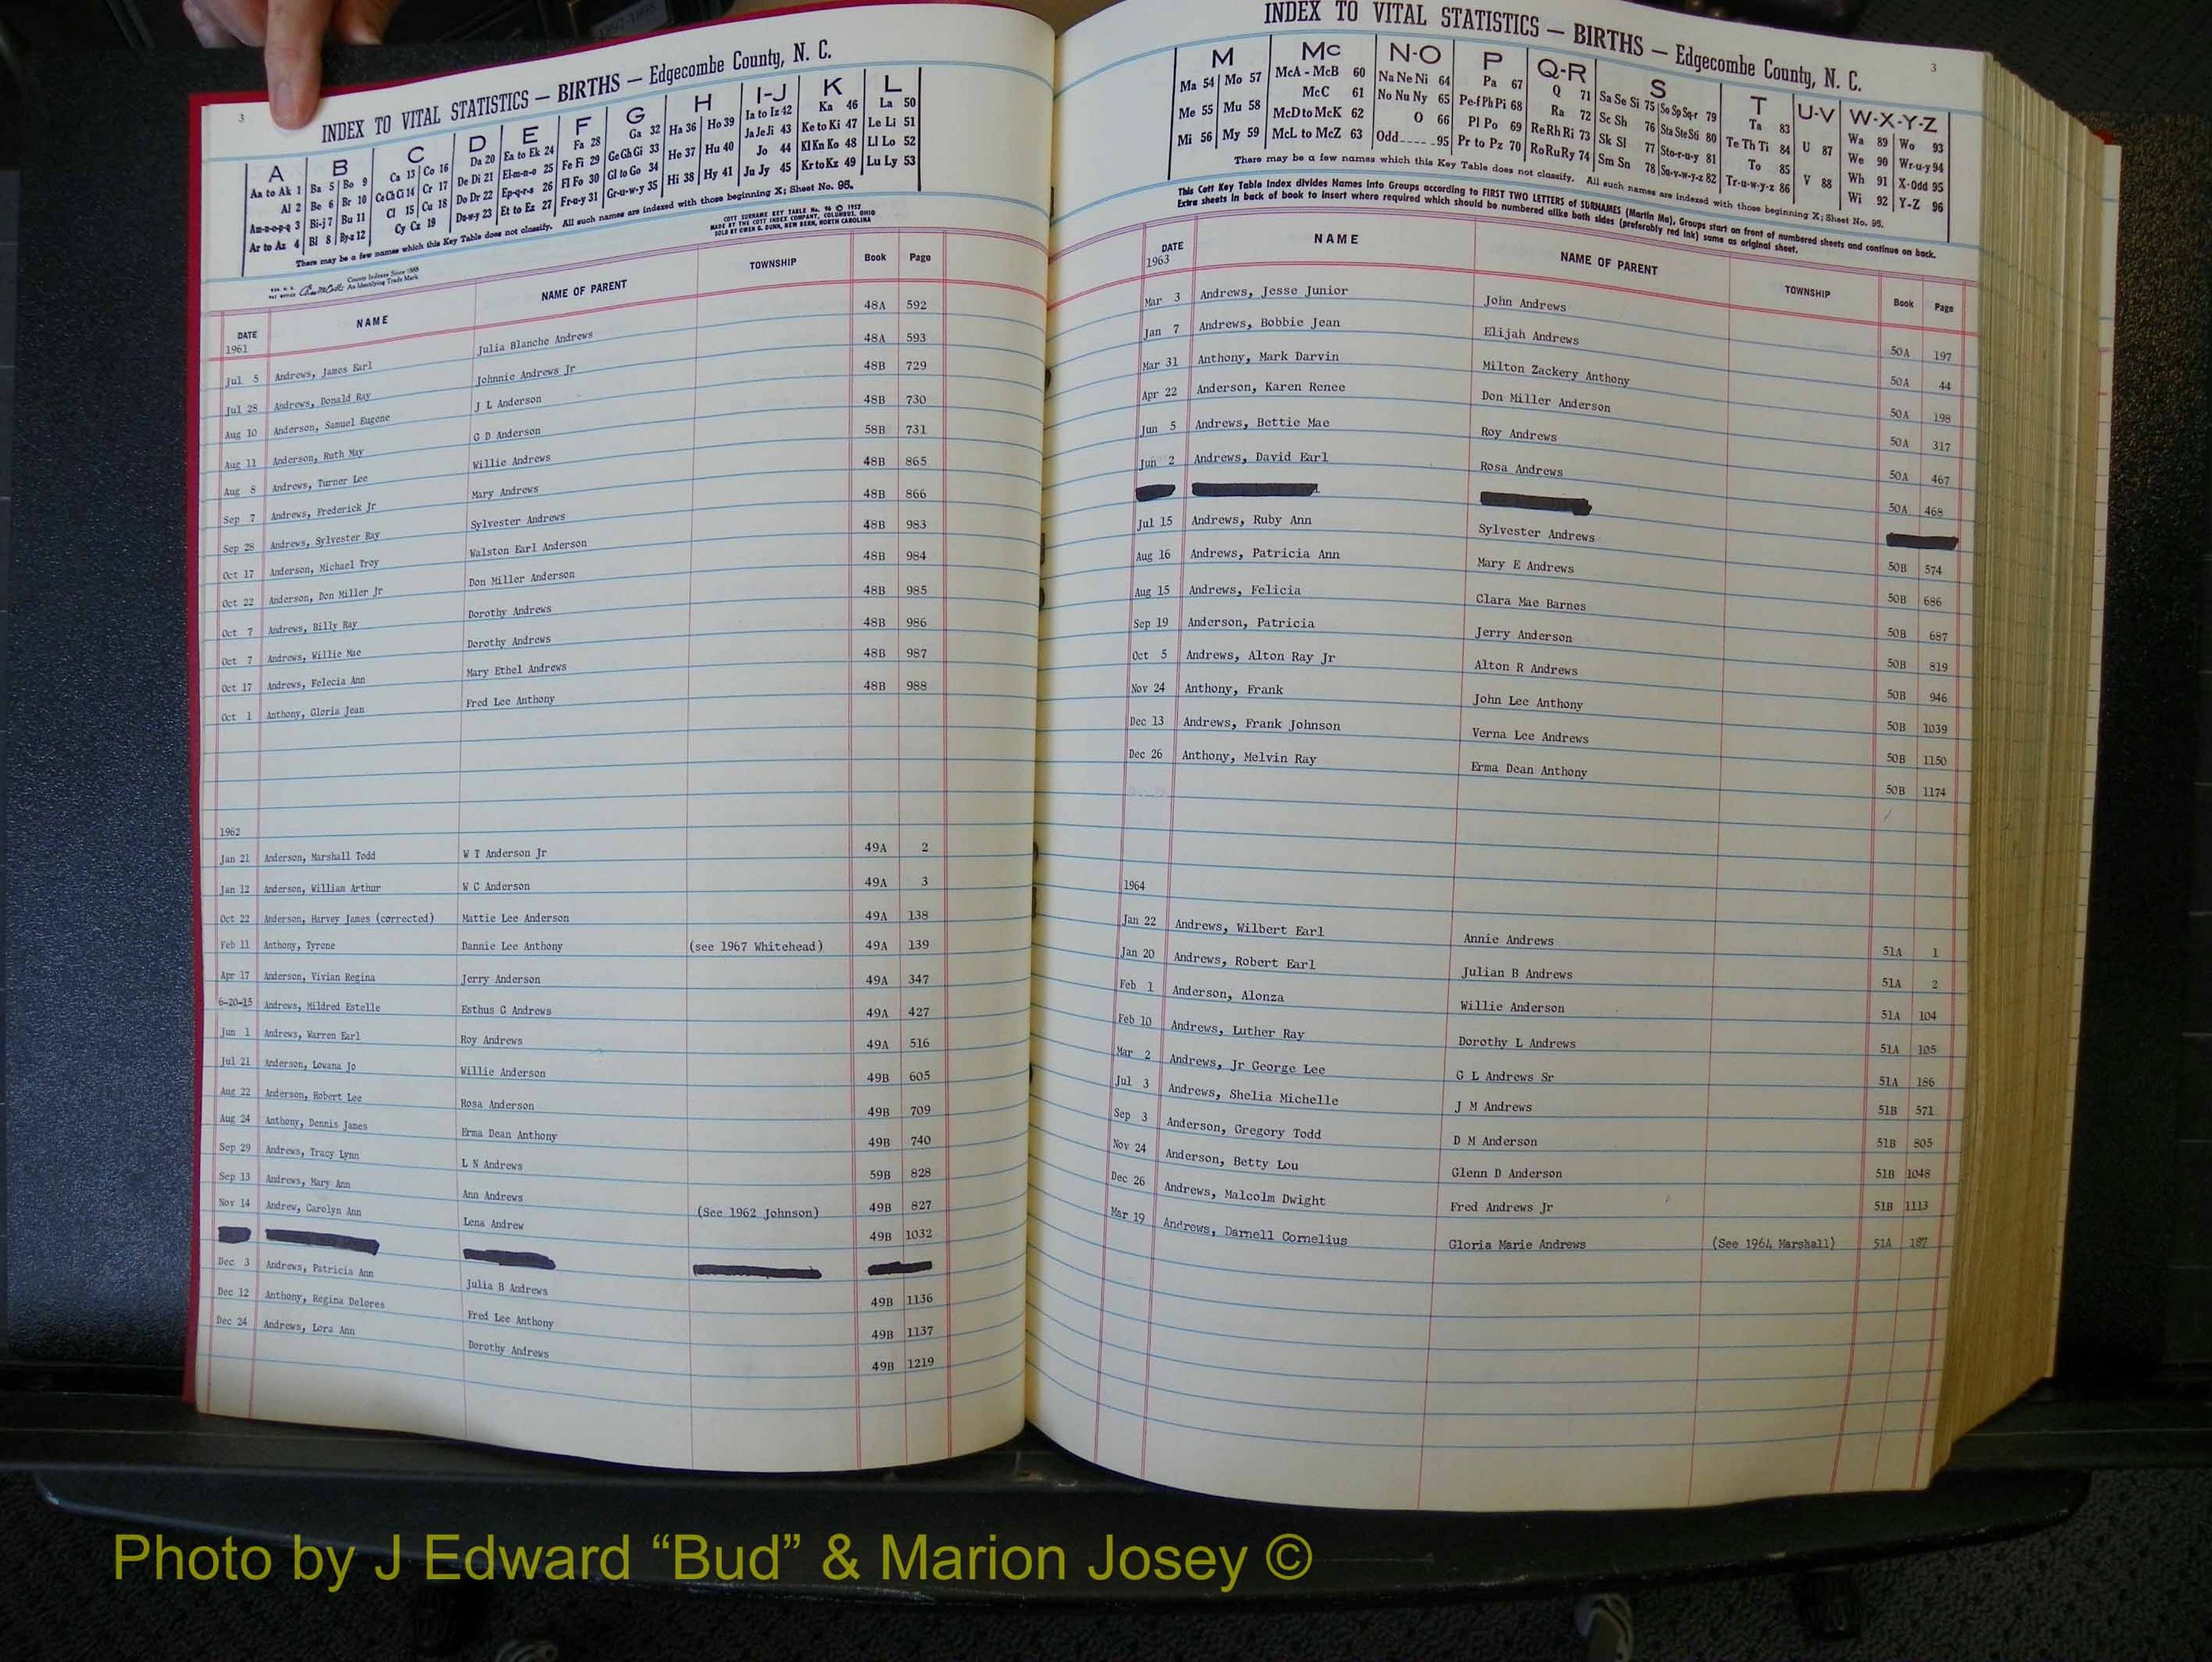 1897-1898
3
INDEX TO VITAL STATISTICS — BIRTHS — Edgecombe County, N. C.
A B C D E F G H I-J K L
Aa to Ak 1 Ba 5 Bo 9 Ca 13 Co 16 Da 20 Ea to Ek 24 Fa 28 Ga 32 Ha 36 Ho 39 Ia to Iz 42 Ka 46 La 50
Al 2 Be 6 Br 10 Ce Ch Ci 14 Cr 17 De Di 21 El-m-n-o 25 Fe Fi 29 Ge Gh Gi 33 He 37 Hu 40 Ja Je Ji 43 Ke to Ki 47 Le Li 51
Am-n-o-p-q 3 Bi-j 7 Bu 11 Cl 15 Cu 18 Do Dr 22 Ep-q-r-s 26 Fl Fo 30 Gl to Go 34 Hi 38 Hy 41 Jo 44 Kl Kn Ko 48 Ll Lo 52
Ar to Az 4 Bl 8 By-z 12 Cy Cz 19 Du-w-y 23 Et to Ez 27 Fr-u-y 31 Gr-u-w-y 35 Ju Jy 45 Kr to Kz 49 Lu Ly 53
There may be a few names which this Key Table does not classify. All such names are indexed with those beginning X; Sheet No. 95.
County Indexes Since 1888
An Identifying Trade Mark
COTT SURNAME KEY TABLE No. 96 © 1952
MADE BY THE COTT INDEX COMPANY, COLUMBUS, OHIO
SOLD BY OWEN G. DUNN, NEW BERN, NORTH CAROLINA
DATE NAME NAME OF PARENT TOWNSHIP Book Page
1961
Jul 5 Andrews, James Earl Julia Blanche Andrews 48A 592
Jul 28 Andrews, Donald Ray Johnnie Andrews Jr 48A 593
Aug 10 Anderson, Samuel Eugene J L Anderson 48B 729
Aug 11 Anderson, Ruth May G D Anderson 48B 730
Aug 8 Andrews, Turner Lee Willie Andrews 58B 731
Sep 7 Andrews, Frederick Jr Mary Andrews 48B 865
Sep 28 Andrews, Sylvester Ray Sylvester Andrews 48B 866
Oct 17 Anderson, Michael Troy Walston Earl Anderson 48B 983
Oct 22 Anderson, Don Miller Jr Don Miller Anderson 48B 984
Oct 7 Andrews, Billy Ray Dorothy Andrews 48B 985
Oct 7 Andrews, Willie Mae Dorothy Andrews 48B 986
Oct 17 Andrews, Felecia Ann Mary Ethel Andrews 48B 987
Oct 1 Anthony, Gloria Jean Fred Lee Anthony 48B 988
1962
Jan 21 Anderson, Marshall Todd W T Anderson Jr 49A 2
Jan 12 Anderson, William Arthur W C Anderson 49A 3
Oct 22 Anderson, Harvey James (corrected) Mattie Lee Anderson 49A 138
Feb 11 Anthony, Tyrone Dannie Lee Anthony (see 1967 Whitehead) 49A 139
Apr 17 Anderson, Vivian Regina Jerry Anderson 49A 347
6-20-15 Andrews, Mildred Estelle Esthus G Andrews 49A 427
Jun 1 Andrews, Warren Earl Roy Andrews 49A 516
Jul 21 Anderson, Lowana Jo Willie Anderson 49B 605
Aug 22 Anderson, Robert Lee Rosa Anderson 49B 709
Aug 24 Anthony, Dennis James Erma Dean Anthony 49B 740
Sep 29 Andrews, Tracy Lynn L N Andrews 59B 828
Sep 13 Andrews, Mary Ann Ann Andrews 49B 827
Nov 14 Andrew, Carolyn Ann Lena Andrew (See 1962 Johnson) 49B 1032
Dec 3 Andrews, Patricia Ann Julia B Andrews 49B 1136
Dec 12 Anthony, Regina Delores Fred Lee Anthony 49B 1137
Dec 24 Andrews, Lora Ann Dorothy Andrews 49B 1219
INDEX TO VITAL STATISTICS — BIRTHS — Edgecombe County, N. C.
3
M Mc N-O P Q-R S T U-V W-X-Y-Z
Ma 54 Mo 57 McA - McB 60 Na Ne Ni 64 Pa 67 Q 71 Sa Se Si 75 So Sp Sq-r 79 Ta 83 U 87 Wa 89 Wo 93
Me 55 Mu 58 McC 61 No Nu Ny 65 Pe-f Ph Pi 68 Ra 72 Sc Sh 76 Sta Ste Sti 80 Te Th Ti 84 V 88 We 90 Wr-u-y 94
Mi 56 My 59 McD to McK 62 O 66 Pl Po 69 Re Rh Ri 73 Sk Sl 77 Sto-r-u-y 81 To 85 Wh 91 X-Odd 95
McL to McZ 63 Odd 95 Pr to Pz 70 Ro Ru Ry 74 Sm Sn 78 Su-v-w-y-z 82 Tr-u-w-y-z 86 Wi 92 Y-Z 96
There may be a few names which this Key Table does not classify. All such names are indexed with those beginning X; Sheet No. 95.
This Cott Key Table Index divides Names into Groups according to FIRST TWO LETTERS of SURNAMES (Martin Ma), Groups start on front of numbered sheets and continue on back.
Extra sheets in back of book to insert where required which should be numbered alike both sides (preferably red ink) same as original sheet.
DATE NAME NAME OF PARENT TOWNSHIP Book Page
1963
Mar 3 Andrews, Jesse Junior John Andrews 50A 197
Jan 7 Andrews, Bobbie Jean Elijah Andrews 50A 44
Mar 31 Anthony, Mark Darvin Milton Zackery Anthony 50A 198
Apr 22 Anderson, Karen Renee Don Miller Anderson 50A 317
Jun 5 Andrews, Bettie Mae Roy Andrews 50A 467
Jun 2 Andrews, David Earl Rosa Andrews 50A 468
Jul 15 Andrews, Ruby Ann Sylvester Andrews 50B 574
Aug 16 Andrews, Patricia Ann Mary E Andrews 50B 686
Aug 15 Andrews, Felicia Clara Mae Barnes 50B 687
Sep 19 Anderson, Patricia Jerry Anderson 50B 819
Oct 5 Andrews, Alton Ray Jr Alton R Andrews 50B 946
Nov 24 Anthony, Frank John Lee Anthony 50B 1039
Dec 13 Andrews, Frank Johnson Verna Lee Andrews 50B 1150
Dec 26 Anthony, Melvin Ray Erma Dean Anthony 50B 1174
1964
Jan 22 Andrews, Wilbert Earl Annie Andrews 51A 1
Jan 20 Andrews, Robert Earl Julian B Andrews 51A 2
Feb 1 Anderson, Alonza Willie Anderson 51A 104
Feb 10 Andrews, Luther Ray Dorothy L Andrews 51A 105
Mar 2 Andrews, Jr George Lee G L Andrews Sr 51A 186
Jul 3 Andrews, Shelia Michelle J M Andrews 51B 571
Sep 3 Anderson, Gregory Todd D M Anderson 51B 805
Nov 24 Anderson, Betty Lou Glenn D Anderson 51B 1048
Dec 26 Andrews, Malcolm Dwight Fred Andrews Jr 51B 1113
Mar 19 Andrews, Darnell Cornelius Gloria Marie Andrews (See 1964 Marshall) 51A 187
Photo by J Edward “Bud” & Marion Josey ©